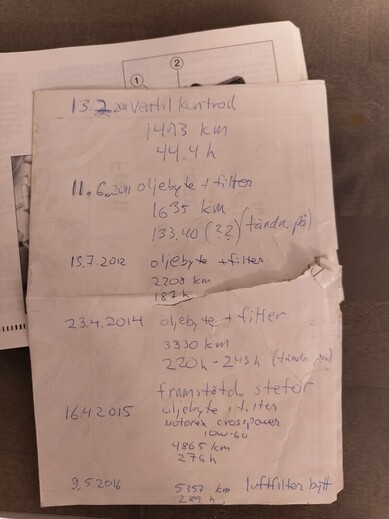 2
1
13.2 2011 ventil kontroll
1413 km
44.4 h
11.6.2011 oljebyte + filter
1635 km
133.40 (??) (tändn. på)
13.7.2012 oljebyte + filter
2208 km
187 h
23.4.2014 oljebyte + filter
3330 km
220h - 243h (tändn på)
framstötd.
16.4 2015 oljebyte + filter
Motorex crosspower
10W-60
4865 km
276h
9.5 2016 5357 km luftfilter bytt
289 h